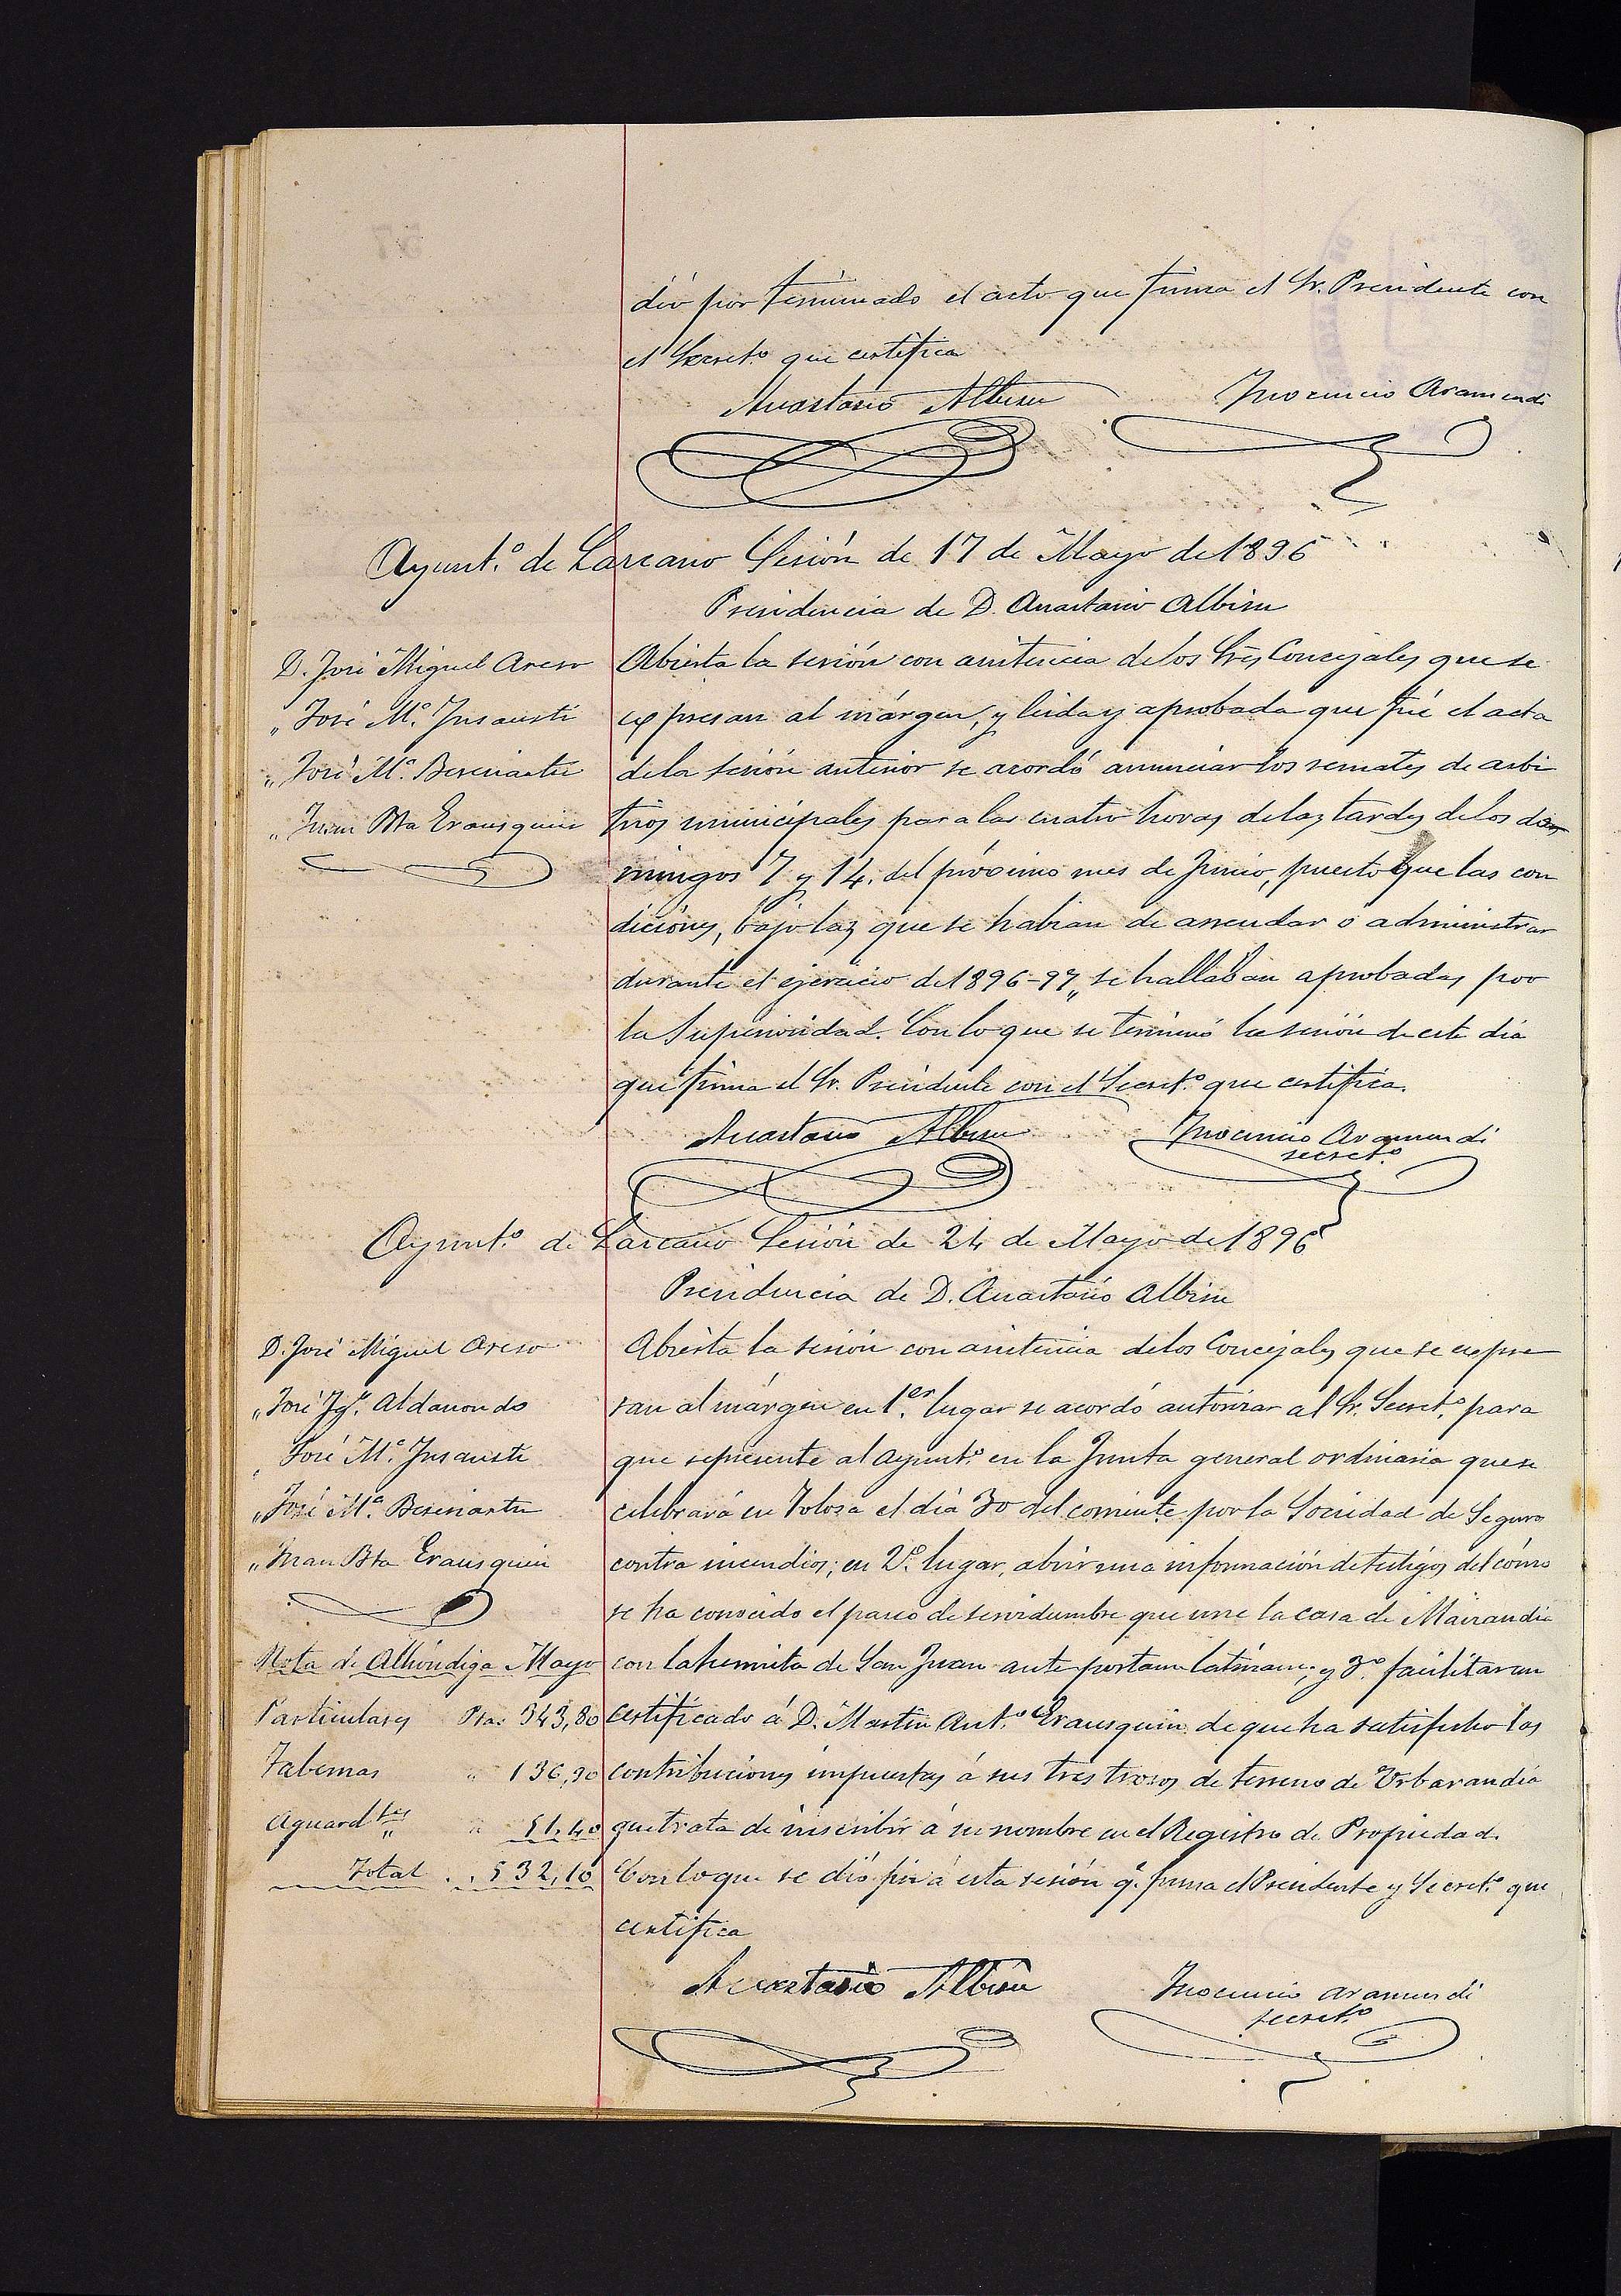 dió por terminado el acto que firma el Sr. Presidente con
el Secret.º que certifica
Anastasio Albisu
Inocencio Aramendi
Ayunt.º de Lazcano Sesión de 17 de Mayo de 1896
Presidencia de D. Anastasio Albisu
D. José Miguel Areso
„ José M.ª Insausti
„ José M.ª Beresiartu
„ Juan Bta Erausquin
Abierta la sesión con asistencia de los Srēs Concejales que se
expresan al márgen, y leida y aprobada que fué el acta
de la sesión anterior se acordó anunciar los remates de arbi
trios municipales para las cuatro horas de las tardes de los do
mingos 7 y 14. del próximo mes de Junio, puesto que las con
diciones, bajo las que se habian de arrendar ó administrar
durante el ejercicio de 1896-97„ se hallaban aprobadas por
la Superioridad. Con lo que se terminó la sesión de este dia
que firma el Sr. Presidente con el Secret.º que certifica.
Anastasio Albisu
Inocencio Aramendi
secret.º
Ayunt.º de Lazcano Sesión de 24 de Mayo de 1896
Presidencia de D. Anastasio Albisu
D. José Miguel Areso
„ José Ig.º Aldanondo
„ José M.ª Insausti
„ José M.ª Beresiartu
„ Juan Bta Erausquin
Abierta la sesión con asistencia de los Concejales que se expre
san al márgen en 1.er lugar se acordó autorizar al Sr. Secret.º para
que represente al Ayunt.º en la Junta general ordinaria que se
celebrará en Tolosa el dia 30 del corriente por la Sociedad de Seguros
contra incendios; en 2.º lugar, abrir una información de testigos del cómo
se ha conocido el paseo de servidumbre que une la casa de Mairandia
con la hermita de San Juan ante portam latinam; y 3.º facilitar un
certificado á D. Martin Ant.º Erausquin de que ha satisfecho las
contribuciones impuestas á sus tres trozos de terreno de Urbarandia
que trata de inscribir á su nombre en el Registro de Propiedad.
Con lo que se dió fin á esta sesión q.e firma el Presidente y Secret.º que
certifica
Nota de Alhóndiga Mayo
Particulares Ptas 343,80
Tabernas „ 136,90
Aguard.tes „ 51,40
Total . . 532,10
Anastasio Albisu
Inocencio Aramendi
secret.º